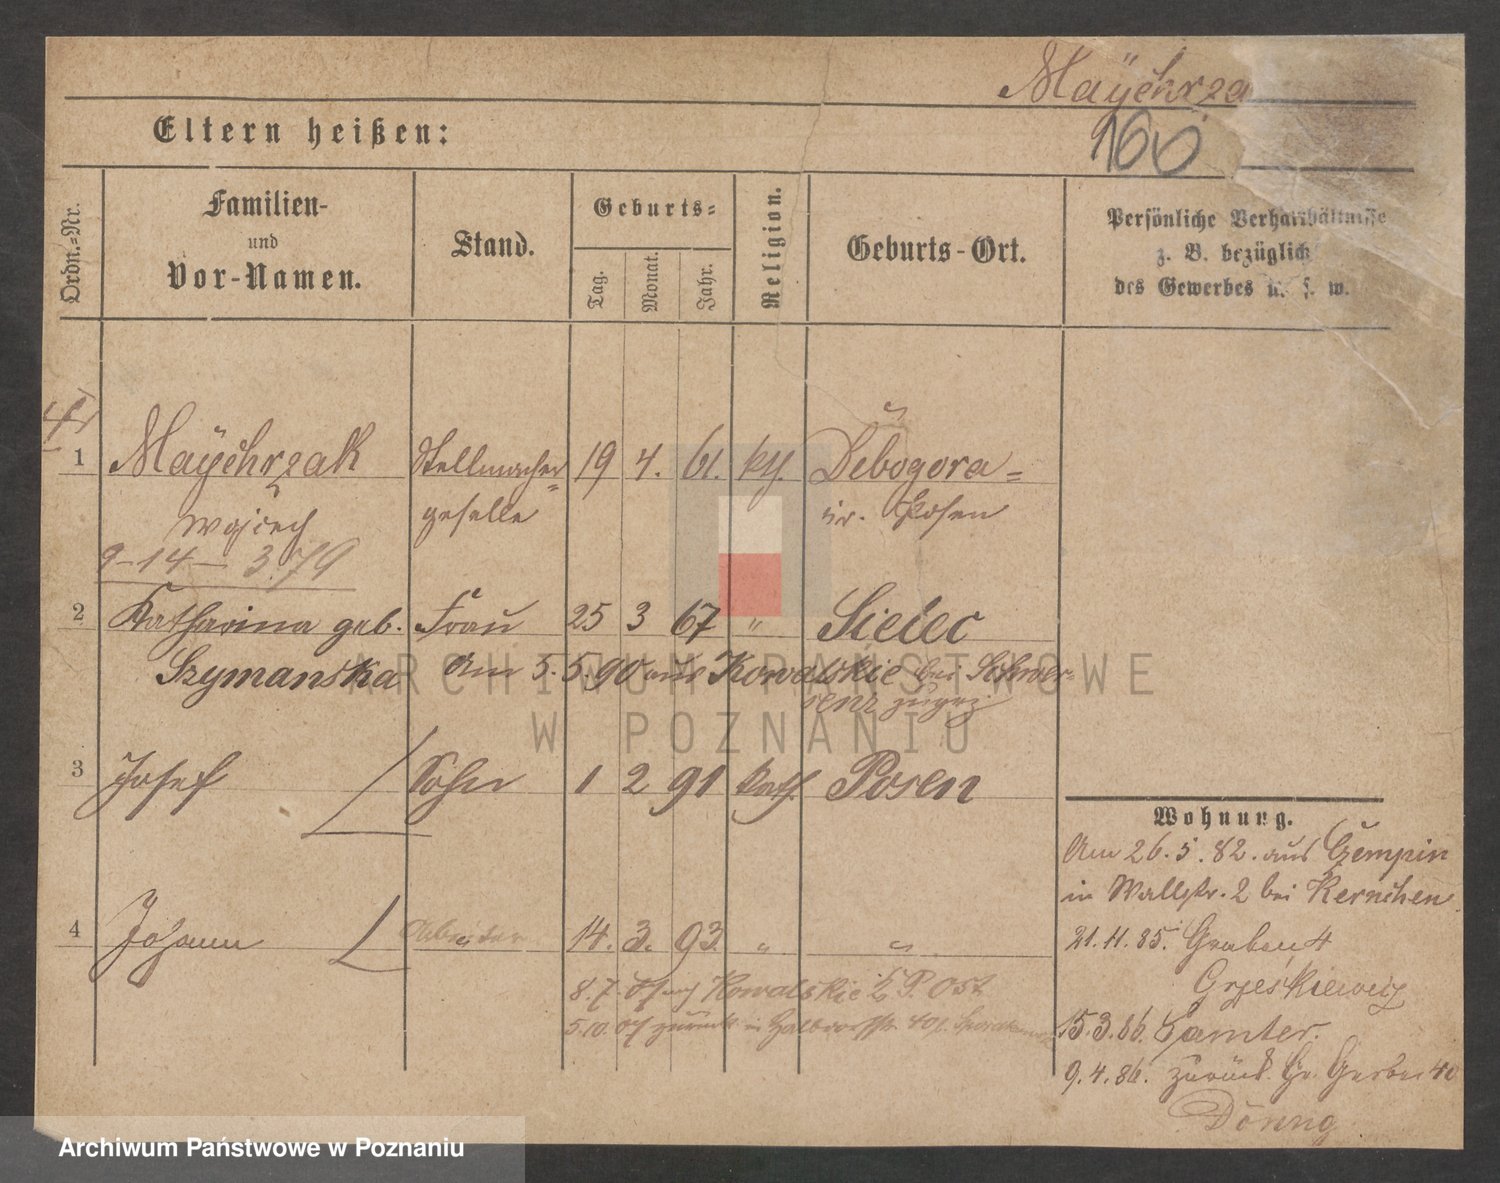 Maÿchrza
160
Eltern heißen:
Ordn.-Nr.
Familien-
und
Vor-Namen.
Stand.
Geburts-
Tag.
Monat.
Jahr.
Religion.
Geburts-Ort.
Persönliche Verhältnisse
z. B. bezüglich
des Gewerbes u. s. w.
1 Maÿchrzak Stellmacher= 19 4. 61. Debogora=
Wojcech geselle Posen
9-14- 3.79
2 Katharina geb. Frau 25 3 67 " Sielec
Szymanska Am 5.5.90 aus Kowalskie bei
3 Josef Sohn 1 2 91 kath. Posen
4 Johann 14. 3. 93. " "
8.7. Kowalskie P. Ost
5.10. zurück in
Wohnung.
Am 26.5.82. aus Czempin
in Wallstr. 2 bei Kernchen
21.11.85. Graben 4
Grzeskiewicz
15.3.86. Samter.
9.4.86. zurück. Gr. Gerber 40
Dönng
ARCHIWUM PAŃSTWOWE
W POZNANIU
Archiwum Państwowe w Poznaniu